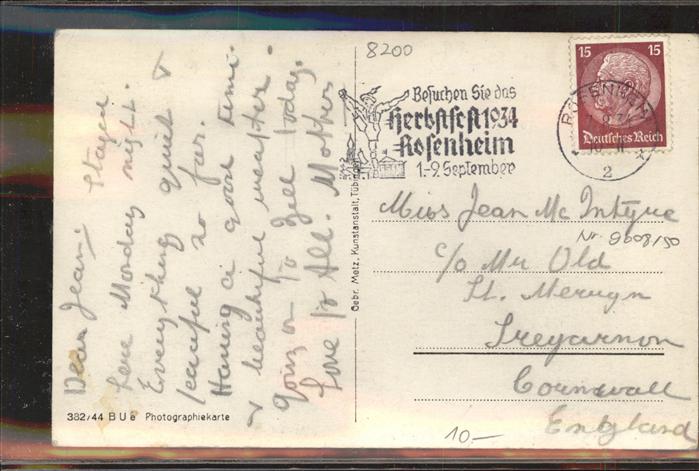 8200
Besuchen Sie das
Herbstfest 1934
Rosenheim
1.-9. September
15 15
Deutsches Reich
ROSENHEIM
2
Dear Jean. Stayed
here Monday night.
Everything quiet &
peaceful so far.
Having a good time
& beautiful weather.
going on to Zell today.
Love to All. Mother
Gebr. Metz, Kunstanstalt, Tübingen
Miss Jean McIntyre
Nr. 9608/50
c/o Mr Old
St. Merryn
Treyarnon
Cornwall
England
382/44 B U e Photographiekarte
10.—